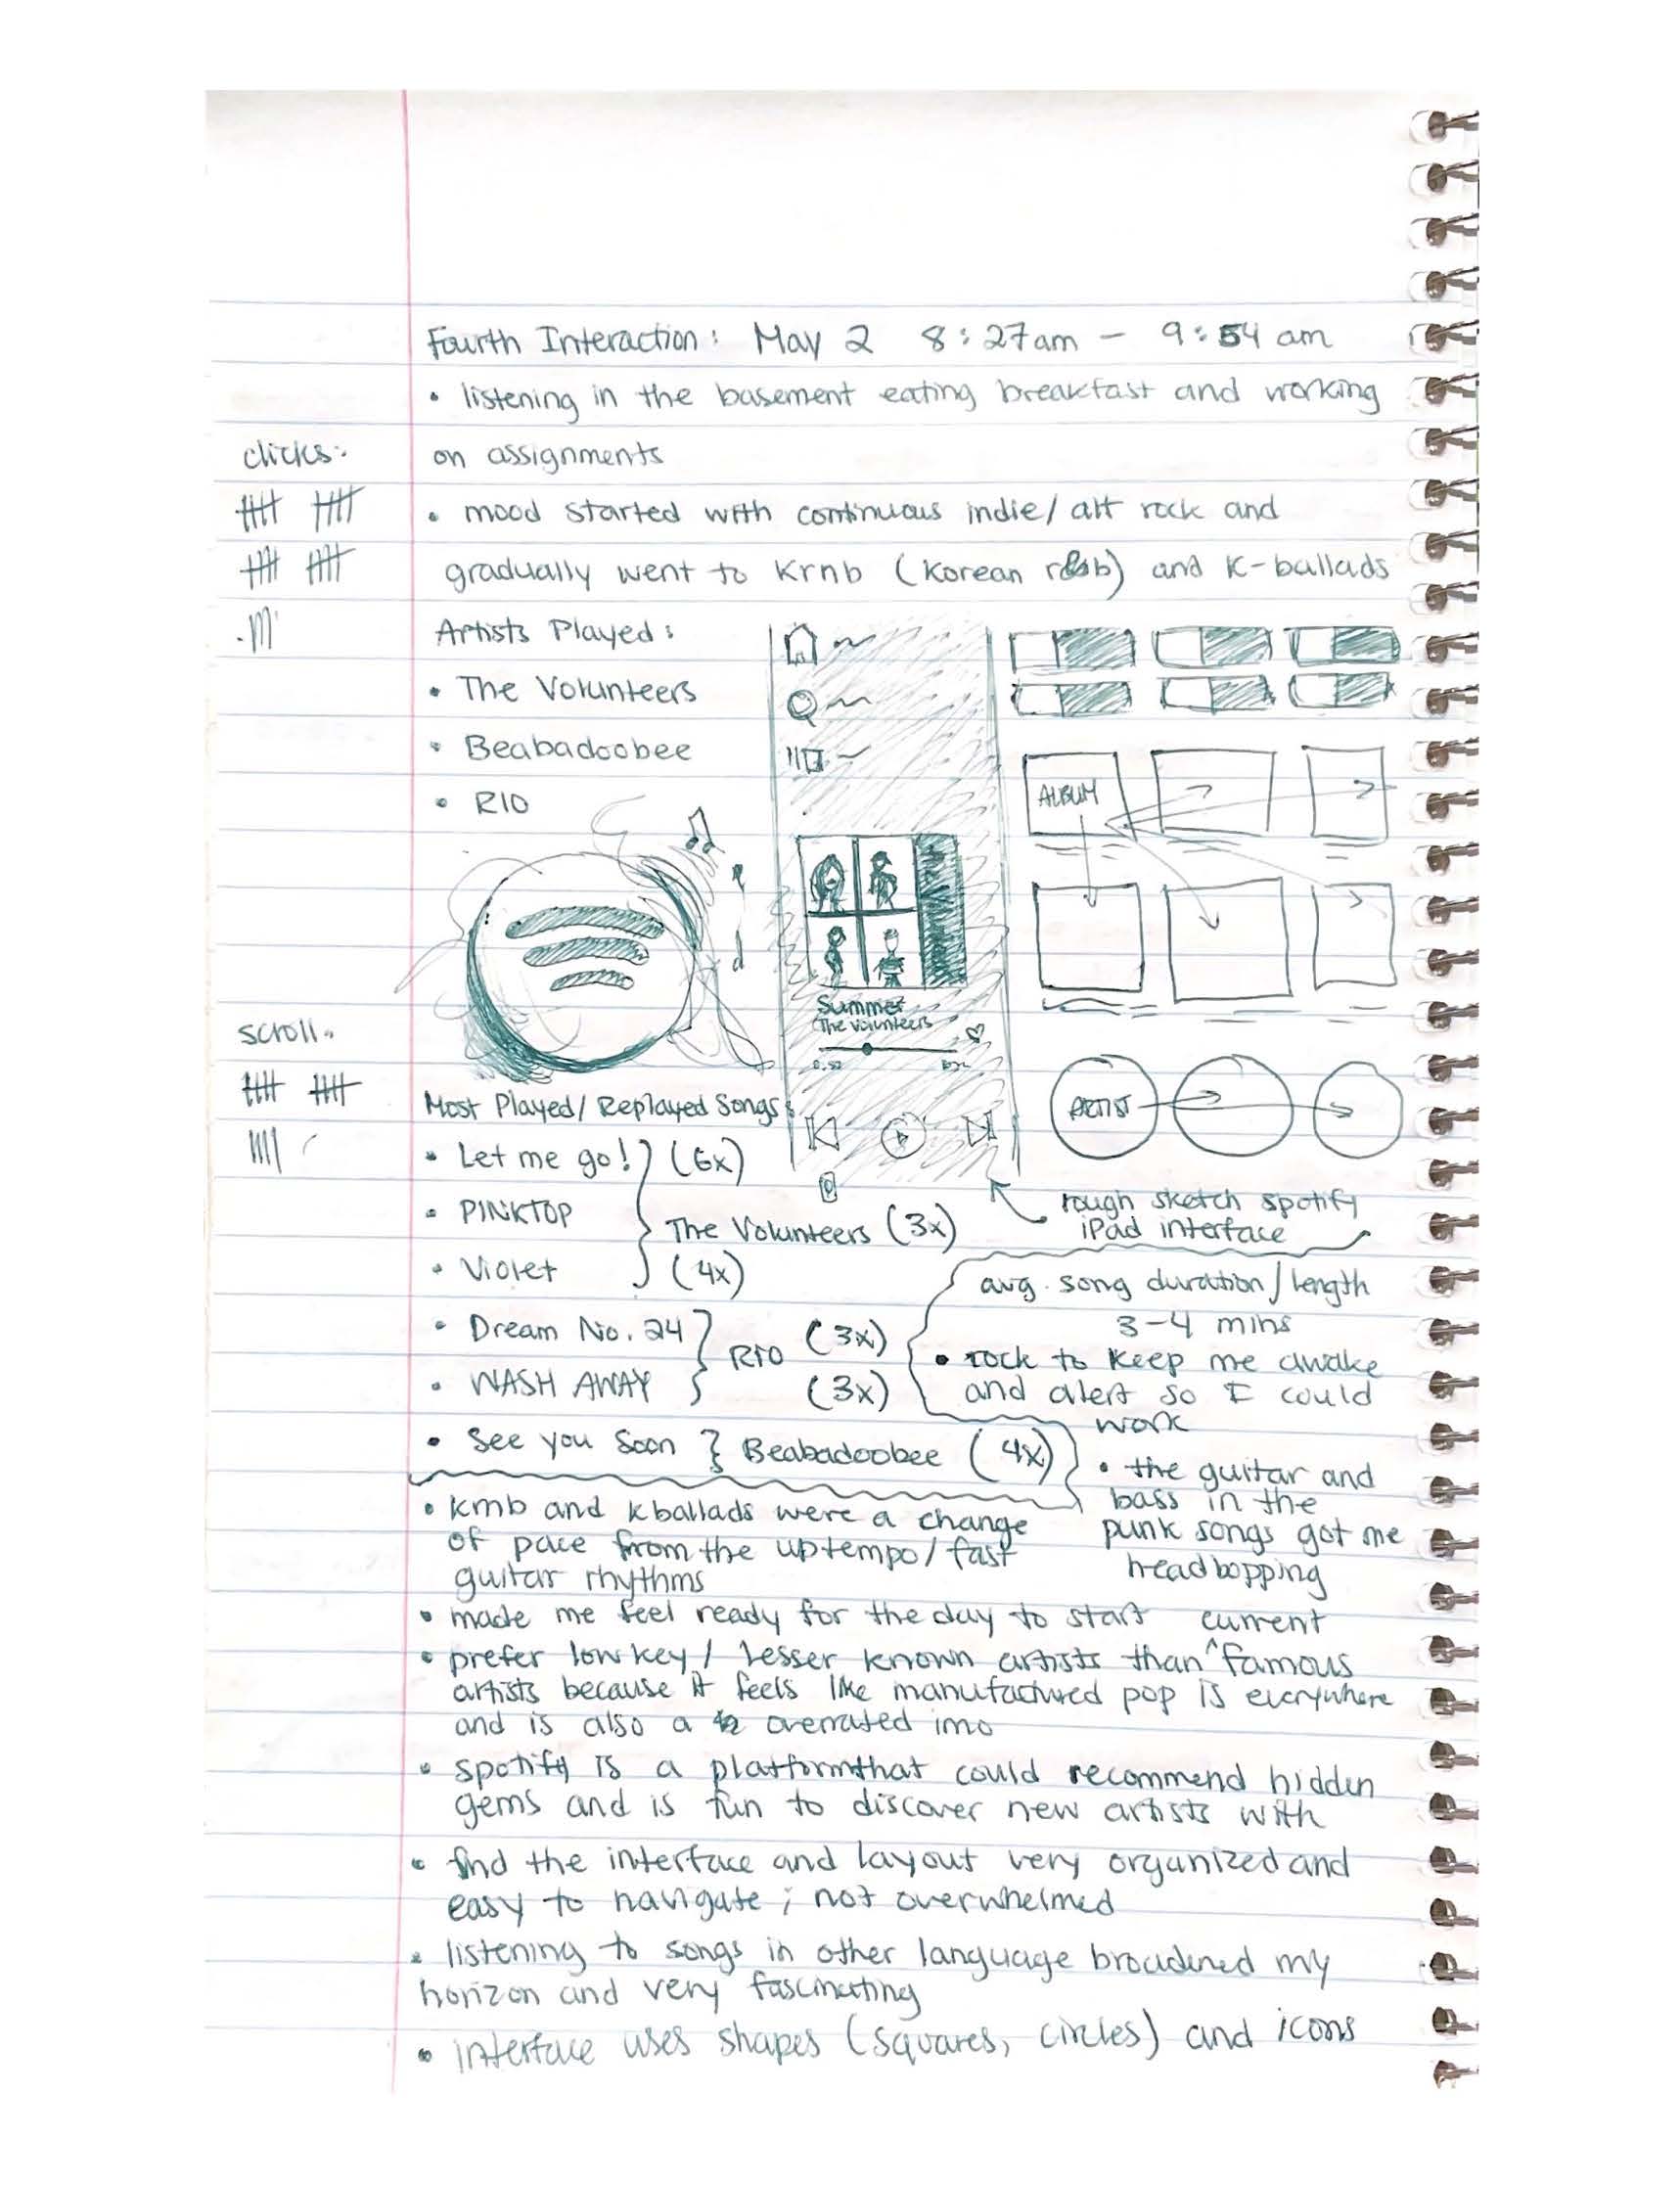 Fourth Interaction: May 2 8:27am - 9:54 am
• listening in the basement eating breakfast and working
on assignments
clicks:
• mood started with continuous indie/alt rock and
gradually went to Krnb (Korean r&b) and K-ballads
Artists Played:
• The Volunteers
• Beabadoobee
• RIO
ALBUM
Summer
The Volunteers
ARTIST
rough sketch spotify
iPad interface
scroll:
Most Played/Replayed Songs:
• Let me go! (6x)
• PINKTOP The Volunteers (3x)
• Violet (4x)
• Dream No. 24 (3x)
RIO
• WASH AWAY (3x)
• See you Soon } Beabadoobee (4x)
avg. song duration/length
3-4 mins
• rock to keep me awake
and alert so I could
work
• the guitar and
bass in the
punk songs got me
headbopping
• krnb and kballads were a change
of pace from the uptempo/fast
guitar rhythms
• made me feel ready for the day to start
• prefer lowkey/lesser known artists than ^current famous
artists because it feels like manufactured pop is everywhere
and is also a overrated imo
• spotify is a platform that could recommend hidden
gems and is fun to discover new artists with
• find the interface and layout very organized and
easy to navigate; not overwhelmed
• listening to songs in other language broadened my
horizon and very fascinating
• interface uses shapes (squares, circles) and icons